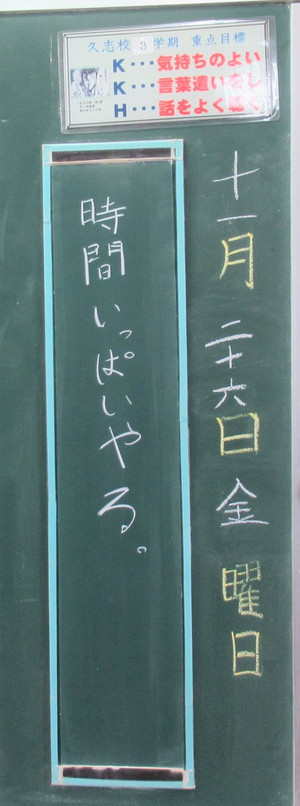 久志校 3 学期 重点目標
K・・・気持ちのよい
K・・・言葉遣いをし
H・・・話をよく聴く
十一月二十六日金曜日
時間いっぱいやる。